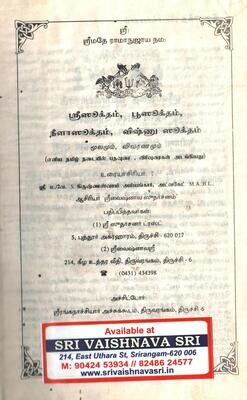 ஸ்ரீ:
ஸ்ரீமதே ராமாநுஜாய நம:
ஸ்ரீஸூக்தம், பூஸூக்தம்,
நீளாஸூக்தம், விஷ்ணு ஸூக்தம்
மூலமும், விவரணமும்
(எளிய தமிழ் நடையில் பதவுரை, விசேஷவுரைகள் அடங்கியது)
உரையாசிரியர் :
ஸ்ரீ உ.வே. S. கிருஷ்ணஸ்வாமி அய்யங்கார், அட்வகேட் M.A.,B.L.,
ஆசிரியர் ஸ்ரீவைஷ்ணவ ஸுதர்சனம்
பதிப்பித்தவர்கள்:
(1) ஸ்ரீ ஸுதர்சனர் ட்ரஸ்ட்
5, புத்தூர் அக்ரஹாரம், திருச்சி - 620 017
(2) ஸ்ரீவைஷ்ணவஸ்ரீ
214, கீழ உத்தர வீதி, திருவரங்கம், திருச்சி - 6
☎ (0431) 434398
அச்சிட்டோர்:
ஸ்ரீரங்கநாச்சியார் அச்சுக்கூடம், திருவரங்கம், திருச்சி 6
Available at
SRI VAISHNAVA SRI
214, East Uthara St, Srirangam-620 006
M: 90424 53934 // 82486 24577
www.srivaishnavasri.in